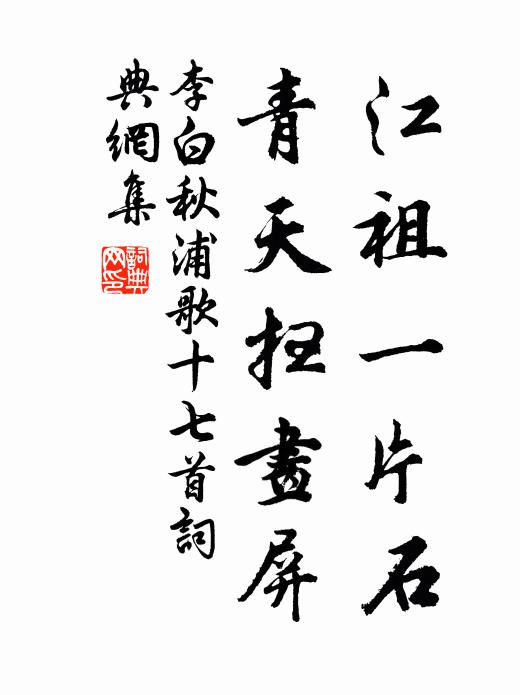 江祖一片石
青天扫畫屏
李白秋浦歌十七首詞
典網集
詞典
网印